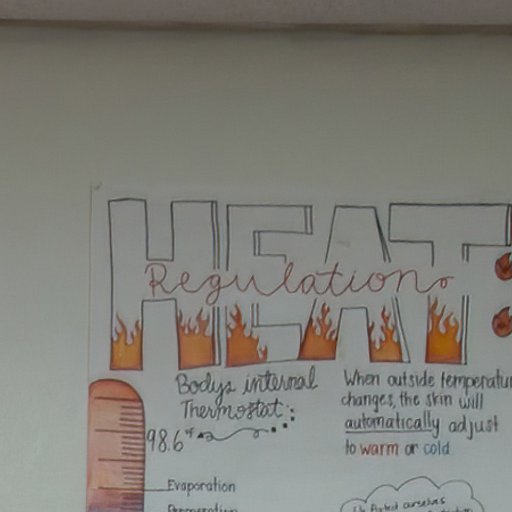 HEAT:
Regulation
Bodys internal
Thermostat:
98.6°F
When outside temperature
changes, the skin will
automatically adjust
to warm or cold
Evaporation
ourselves